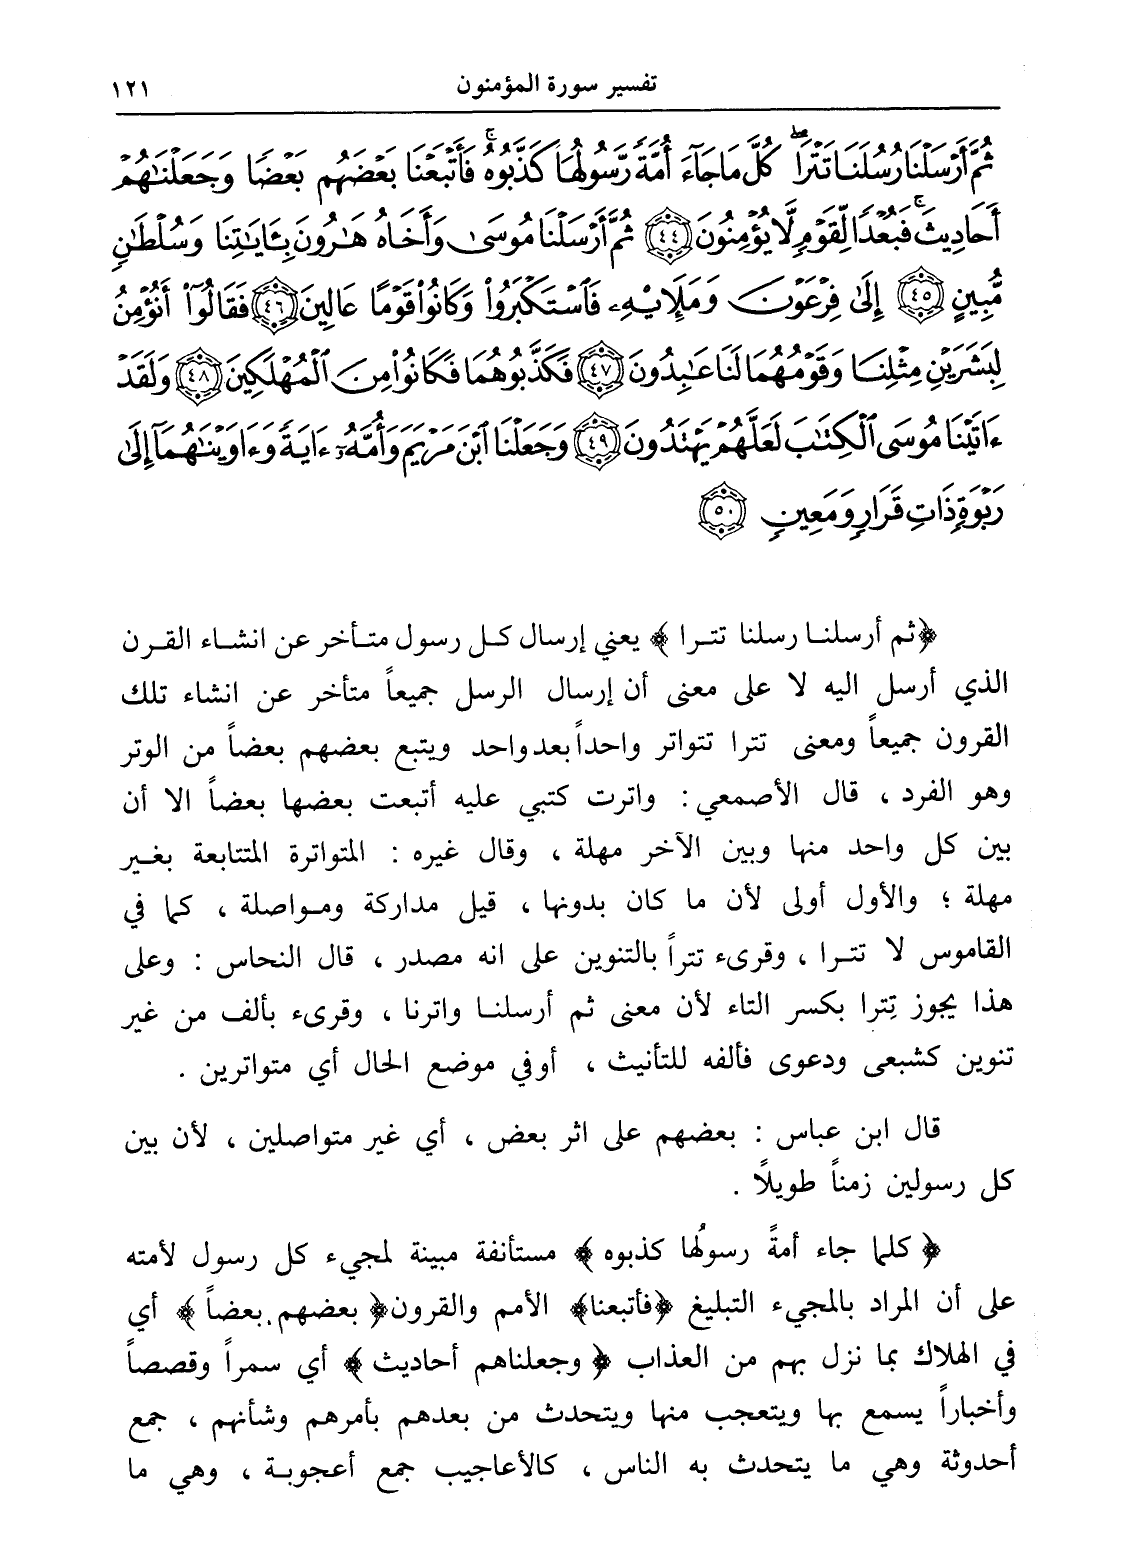 تفسير سورة المؤمنون ١٢١
ثُمَّ أَرْسَلْنَا رُسُلَنَا تَتْرَا ۖ كُلَّ مَا جَآءَ أُمَّةً رَّسُولُهَا كَذَّبُوهُ ۚ فَأَتْبَعْنَا بَعْضَهُم بَعْضًا وَجَعَلْنَـٰهُمْ
أَحَادِيثَ ۚ فَبُعْدًا لِّقَوْمٍ لَّا يُؤْمِنُونَ ﴿٤٤﴾ ثُمَّ أَرْسَلْنَا مُوسَىٰ وَأَخَاهُ هَـٰرُونَ بِـَٔايَـٰتِنَا وَسُلْطَـٰنٍ
مُّبِينٍ ﴿٤٥﴾ إِلَىٰ فِرْعَوْنَ وَمَلَإِي۟هِۦ فَٱسْتَكْبَرُوا۟ وَكَانُوا۟ قَوْمًا عَالِينَ ﴿٤٦﴾ فَقَالُوٓا۟ أَنُؤْمِنُ
لِبَشَرَيْنِ مِثْلِنَا وَقَوْمُهُمَا لَنَا عَـٰبِدُونَ ﴿٤٧﴾ فَكَذَّبُوهُمَا فَكَانُوا۟ مِنَ ٱلْمُهْلَكِينَ ﴿٤٨﴾ وَلَقَدْ
ءَاتَيْنَا مُوسَى ٱلْكِتَـٰبَ لَعَلَّهُمْ يَهْتَدُونَ ﴿٤٩﴾ وَجَعَلْنَا ٱبْنَ مَرْيَمَ وَأُمَّهُۥٓ ءَايَةً وَءَاوَيْنَـٰهُمَآ إِلَىٰ
رَبْوَةٍ ذَاتِ قَرَارٍ وَمَعِينٍ ﴿٥٠﴾
﴿ثم أرسلنا رسلنا تترا﴾ يعني إرسال كل رسول متأخر عن انشاء القرن
الذي أرسل اليه لا على معنى أن إرسال الرسل جميعاً متأخر عن انشاء تلك
القرون جميعاً ومعنى تترا تتواتر واحداً بعد واحد ويتبع بعضهم بعضاً من الوتر
وهو الفرد ، قال الأصمعي : واترت كتبي عليه أتبعت بعضها بعضاً الا أن
بين كل واحد منها وبين الآخر مهلة ، وقال غيره : المتواترة المتتابعة بغير
مهلة ؛ والأول أولى لأن ما كان بدونها ، قيل مداركة ومواصلة ، كما في
القاموس لا تترا ، وقرىء تتراً بالتنوين على انه مصدر ، قال النحاس : وعلى
هذا يجوز تِترا بكسر التاء لأن معنى ثم أرسلنا واترنا ، وقرىء بألف من غير
تنوين كشبعى ودعوى فألفه للتأنيث ، أو في موضع الحال أي متواترين .
قال ابن عباس : بعضهم على اثر بعض ، أي غير متواصلين ، لأن بين
كل رسولين زمناً طويلًا .
﴿كلما جاء أمةً رسولُها كذبوه﴾ مستأنفة مبينة لمجيء كل رسول لأمته
على أن المراد بالمجيء التبليغ ﴿فأتبعنا﴾ الأمم والقرون ﴿بعضهم بعضاً﴾ أي
في الهلاك بما نزل بهم من العذاب ﴿وجعلناهم أحاديث﴾ أي سمراً وقصصاً
وأخباراً يسمع بها ويتعجب منها ويتحدث من بعدهم بأمرهم وشأنهم ، جمع
أحدوثة وهي ما يتحدث به الناس ، كالأعاجيب جمع أعجوبة ، وهي ما